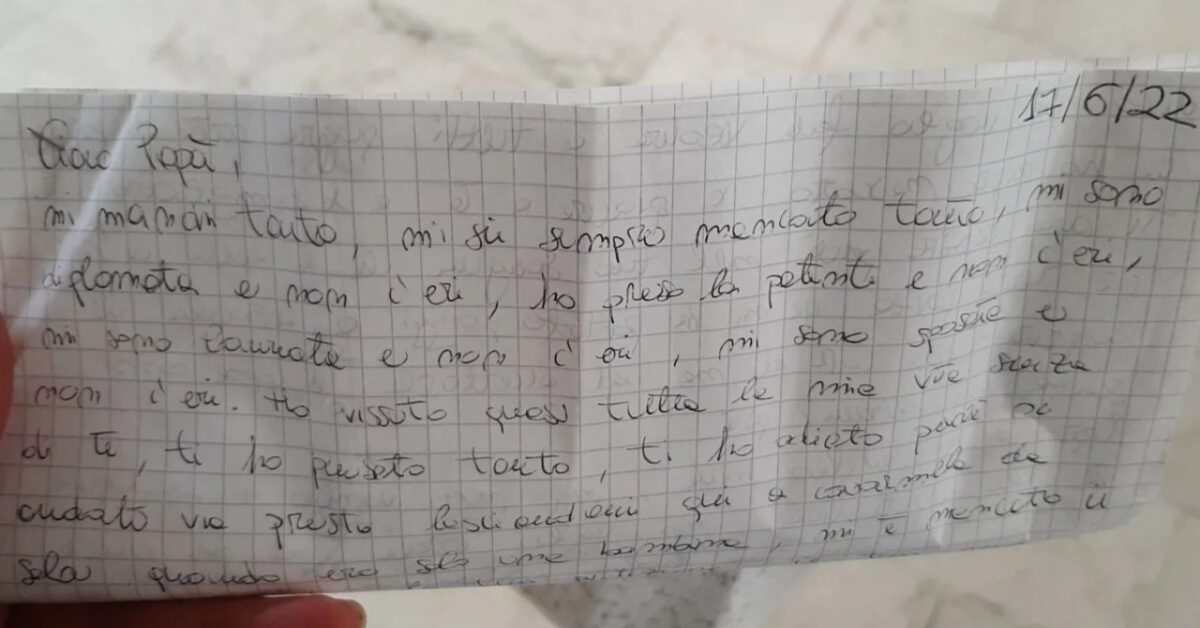 17/6/22
Ciao Papà,
mi manchi tanto, mi sei sempre mancato tanto, mi sono
diplomata e non c'eri, ho preso la patente e non c'eri,
mi sono laureata e non c'eri, mi sono sposata e
non c'eri. Ho vissuto quasi tutta la mia vita senza
di te, ti ho pensato tanto, ti ho odiato perché
andato via presto lasciandomi qui a
sola quando ero solo una bambina, mi è mancato il